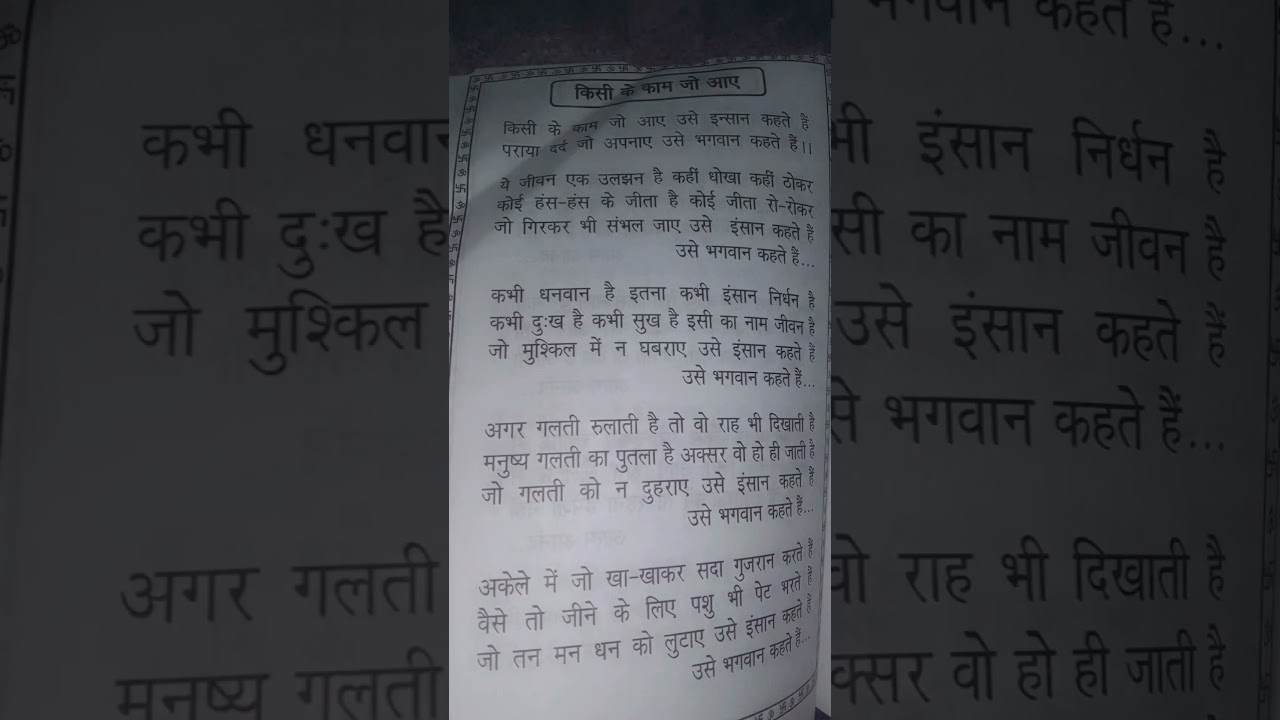 किसी के काम जो आए
किसी के काम जो आए उसे इन्सान कहते हैं
पराया दर्द जो अपनाए उसे भगवान कहते हैं।।
ये जीवन एक उलझन है कहीं धोखा कहीं ठोकर
कोई हंस-हंस के जीता है कोई जीता रो-रोकर
जो गिरकर भी संभल जाए उसे इंसान कहते हैं
उसे भगवान कहते हैं...
कभी धनवान है इतना कभी इंसान निर्धन है
कभी दुःख है कभी सुख है इसी का नाम जीवन है
जो मुश्किल में न घबराए उसे इंसान कहते हैं
उसे भगवान कहते हैं...
अगर गलती रुलाती है तो वो राह भी दिखाती है
मनुष्य गलती का पुतला है अक्सर वो हो ही जाती है
जो गलती को न दुहराए उसे इंसान कहते हैं
उसे भगवान कहते हैं...
अकेले में जो खा-खाकर सदा गुजरान करते हैं
वैसे तो जीने के लिए पशु भी पेट भरते हैं
जो तन मन धन को लुटाए उसे इंसान कहते हैं
उसे भगवान कहते हैं...